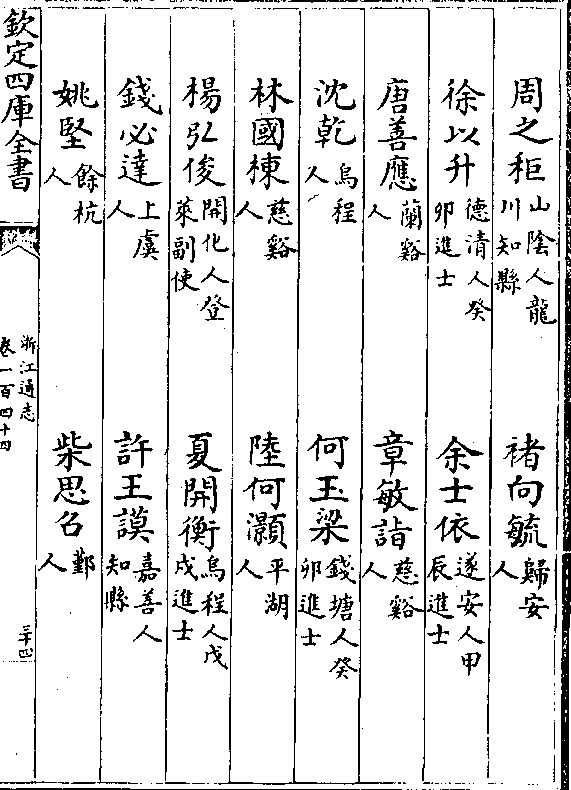 周之秬山陰人龍川知縣　褚向毓歸安人
徐以升德清人癸卯進士　余士依遂安人甲辰進士
唐善應蘭谿人　章敏詣慈谿人
沈乾烏程人　何玉梁錢塘人癸卯進士
林國棟慈谿人　陸何灝平湖人
楊弘俊開化人登萊副使　夏開衡烏程人戊戌進士
錢必達上虞人　許王謨嘉善人知縣
姚堅餘杭人　柴思召鄞人
欽定四庫全書　浙江通志卷一百四十四　三十四